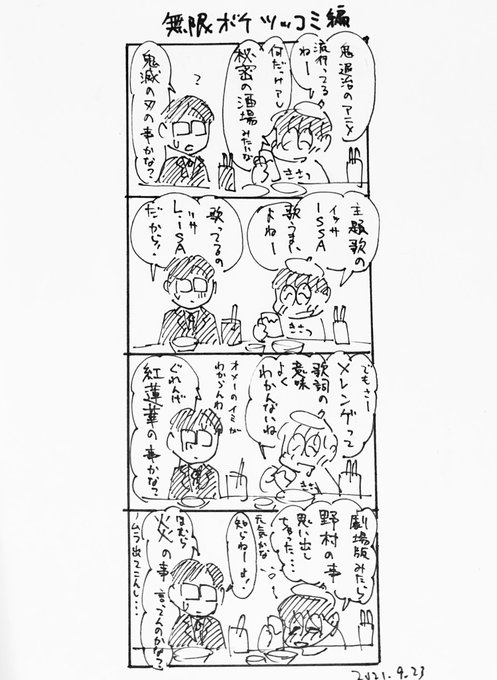 無限ボケツッコミ編
鬼退治のアニメ
流行ってる
ねー
何だっけアレ
秘密の酒場みたいな
?
鬼滅の刃の事かな?
主題歌の
イッサ
ISSA
歌うまい
よねー
歌ってるの
リサ
LiSA
だから!
でもさー
メレンゲって
歌詞の
意味
よく
わかんないね
オメーのイミが
わからんわ
ぐれんげ
紅蓮華の事かな?
劇場版みたら
野村の事
思い出し
ちゃった…
元気かな
知らねーよ。
ほむら
炎の事言ってんのかな?
ムラ出てこんし…
2021.9.23